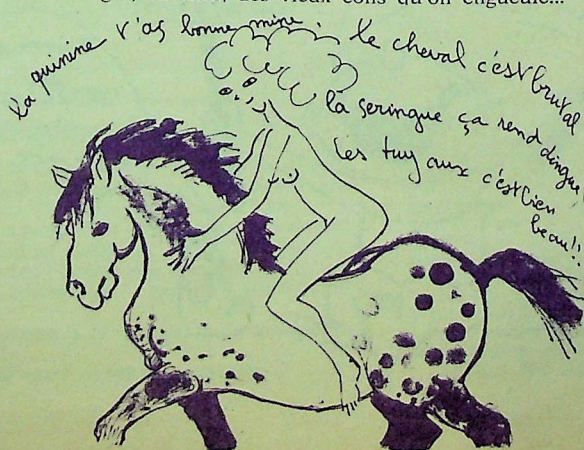 des vieux cons qu'on engueule...
la quinine t'as bonne mine.
le cheval c'est brutal
la seringue ça rend dingue
les tuyaux c'est bien
beau!!